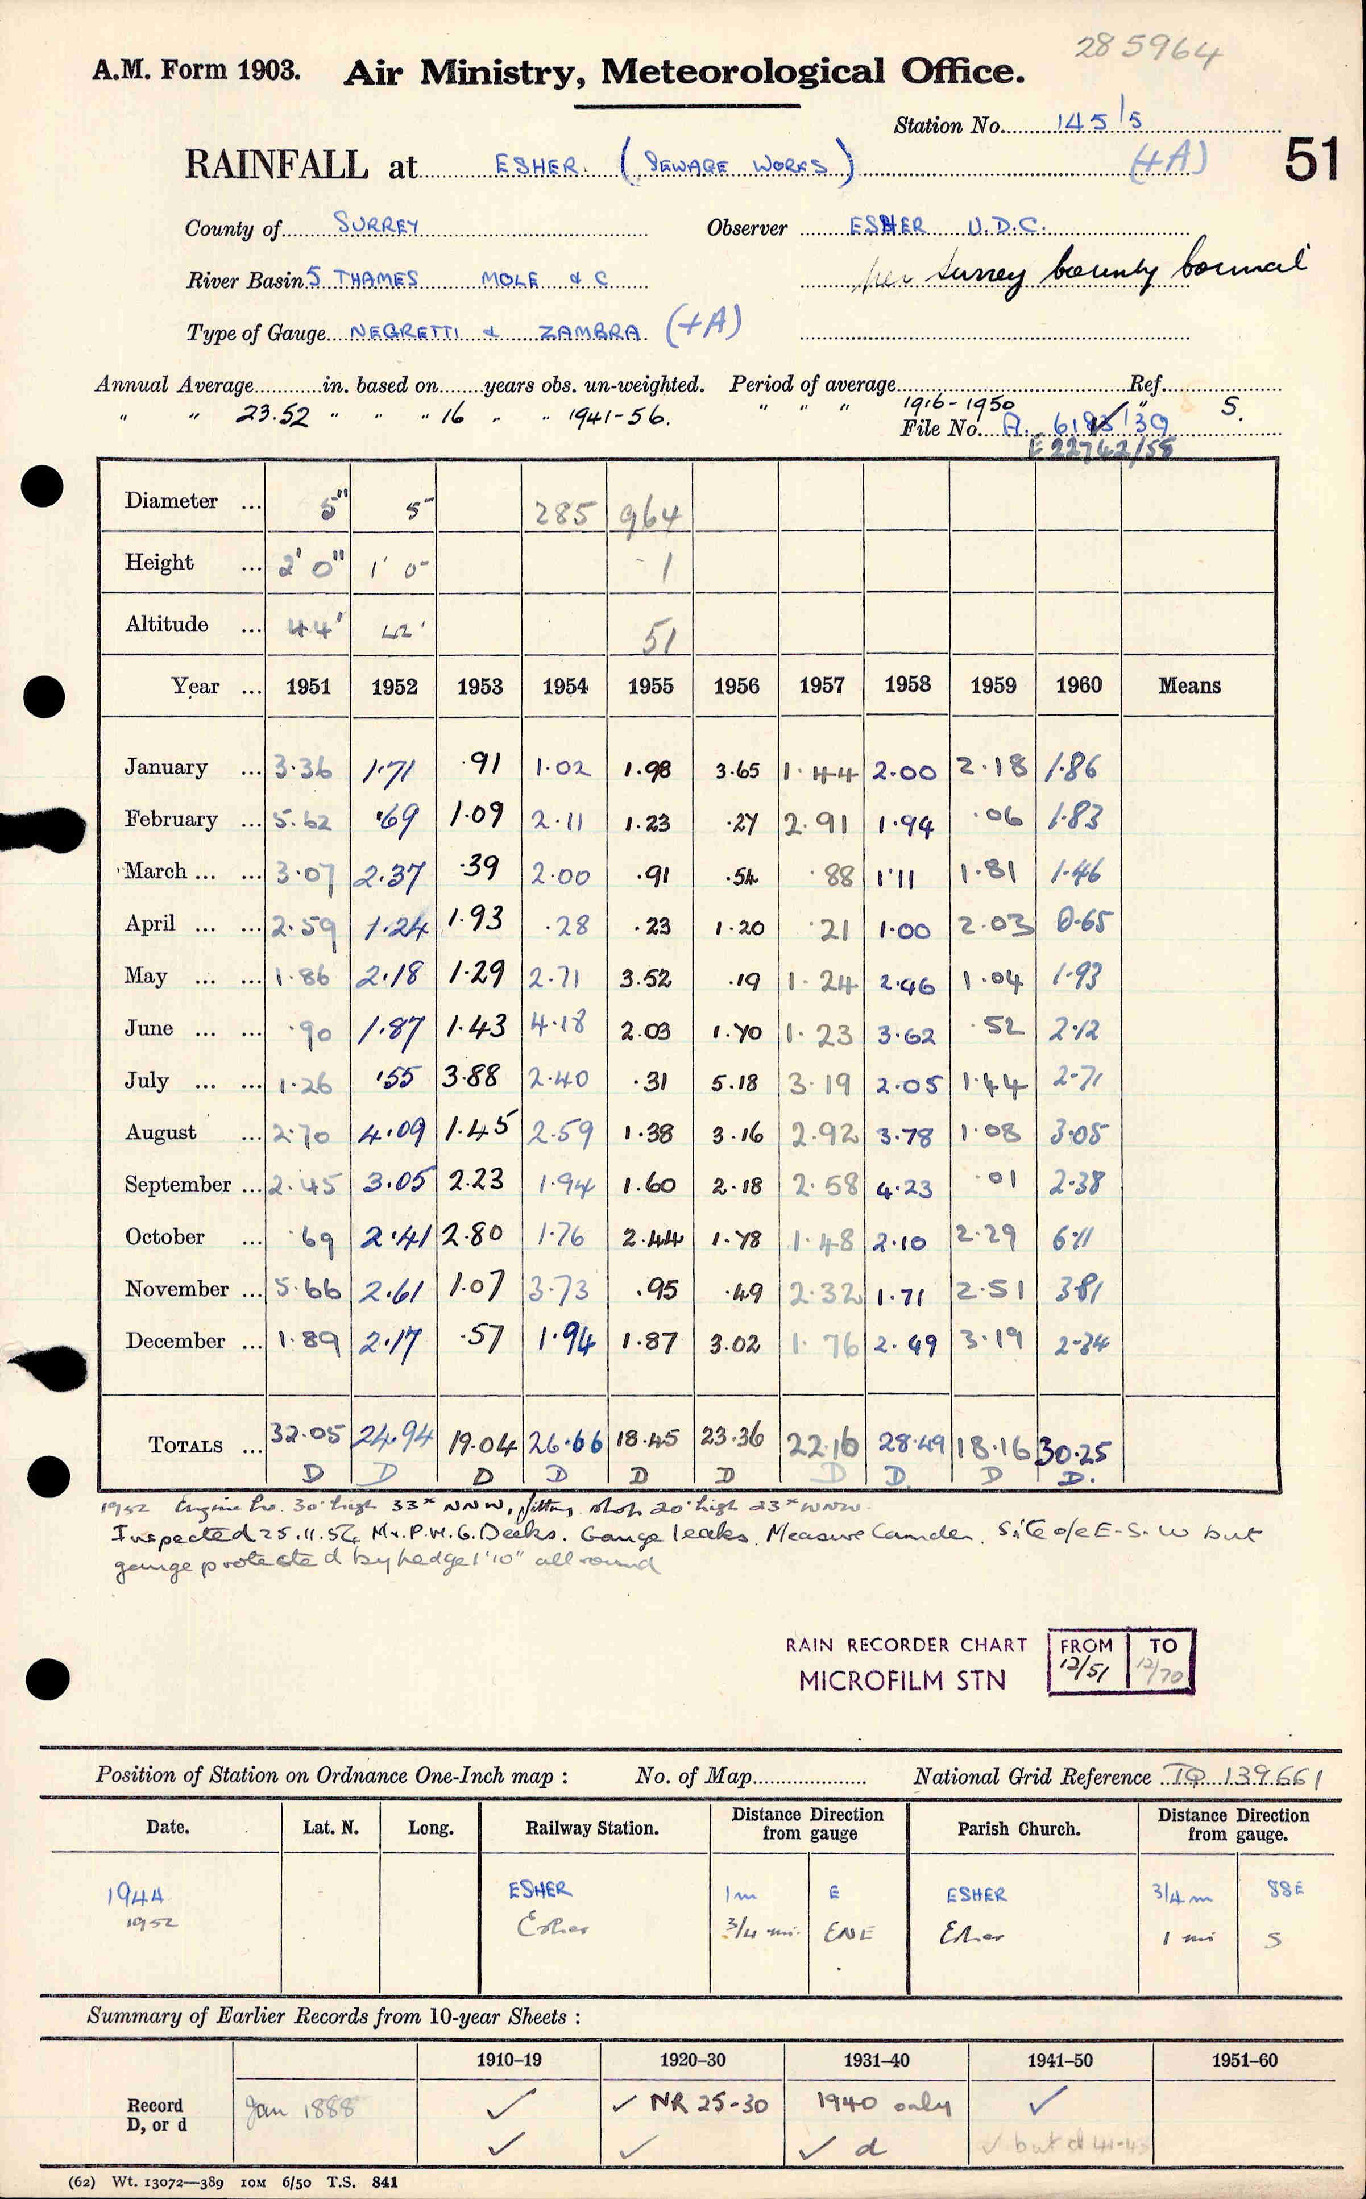 285964
A.M. Form 1903. Air Ministry, Meteorological Office.
Station No. 145/5
RAINFALL at ESHER. (SEWAGE WORKS) (+A) 51
County of SURREY Observer ESHER U.D.C.
River Basin 5 THAMES MOLE & C per Surrey County
Type of Gauge NEGRETTI & ZAMBRA (+A)
Annual Average in. based on years obs. un-weighted. Period of average Ref.
" " 23.52 " " " 16 " " 1941-56. " " " 1916-1950 " S.
File No. A. 6183/39
E 22742/58
Diameter ... 5" 5" 285 964
Height ... 2' 0" 1' 0" 1
Altitude ... 44' 42' 51
Year ... 1951 1952 1953 1954 1955 1956 1957 1958 1959 1960 Means
January ... 3.36 1.71 .91 1.02 1.98 3.65 1.44 2.00 2.18 1.86
February ... 5.62 .69 1.09 2.11 1.23 .27 2.91 1.94 .06 1.83
March ... ... 3.07 2.37 .39 2.00 .91 .54 .88 1.11 1.81 1.46
April ... ... 2.59 1.24 1.93 .28 .23 1.20 .21 1.00 2.03 0.65
May ... ... 1.86 2.18 1.29 2.71 3.52 .19 1.24 2.46 1.04 1.93
June ... ... .90 1.87 1.43 4.18 2.03 1.70 1.23 3.62 .52 2.12
July ... ... 1.26 .55 3.88 2.40 .31 5.18 3.19 2.05 1.44 2.71
August ... 2.70 4.09 1.45 2.59 1.38 3.16 2.92 3.78 1.08 3.05
September ... 2.45 3.05 2.23 1.94 1.60 2.18 2.58 4.23 .01 2.38
October ... .69 2.41 2.80 1.76 2.44 1.78 1.48 2.10 2.29 6.11
November ... 5.66 2.61 1.07 3.73 .95 .49 2.32 1.71 2.51 3.81
December ... 1.89 2.17 .57 1.94 1.87 3.02 1.76 2.49 3.19 2.34
TOTALS ... 32.05 24.94 19.04 26.66 18.45 23.36 22.16 28.49 18.16 30.25
D D D D D D D D. D D.
1952 Engine Ho. 30' high 33x NNW, fitting shop 20' high 23x WNW.
Inspected 25.11.54 Mr. P.W.G. Deeks. Gauge leaks. Measure Camden. Site o/e E-S-W but
gauge protected by hedge 1'10" all round
RAIN RECORDER CHART FROM TO
MICROFILM STN 12/51 12/70
Position of Station on Ordnance One-Inch map : No. of Map National Grid Reference TQ 139661
Date. Lat. N. Long. Railway Station. Distance Direction from gauge Parish Church. Distance Direction from gauge.
1944 ESHER 1m E ESHER 3/4 m SSE
1952 Esher 3/4 mi. ENE Esher 1 mi S
Summary of Earlier Records from 10-year Sheets :
1910–19 1920–30 1931–40 1941–50 1951–60
Record Jan 1888 ✓ ✓ NR 25-30 1940 only ✓
D, or d ✓ ✓ ✓ d ✓ but d 41-4
(62) Wt. 13072—389 10M 6/50 T.S. 841